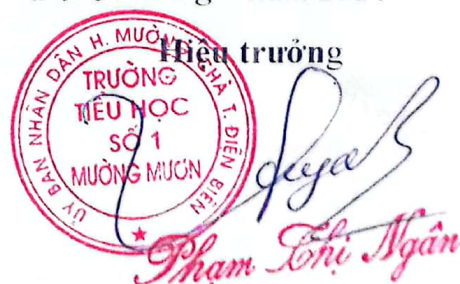 Hiệu trưởng
ỦY BAN NHÂN DÂN H. MƯỜNG CHÀ T. ĐIỆN BIÊN
TRƯỜNG
TIỂU HỌC
SỐ 1
MƯỜNG MƯƠN
Phạm Thị Ngân